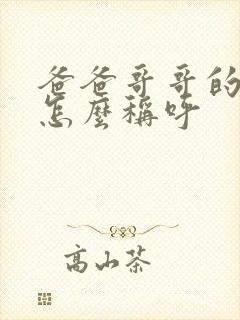 爸爸哥哥的
怎麼稱呼
高山茶